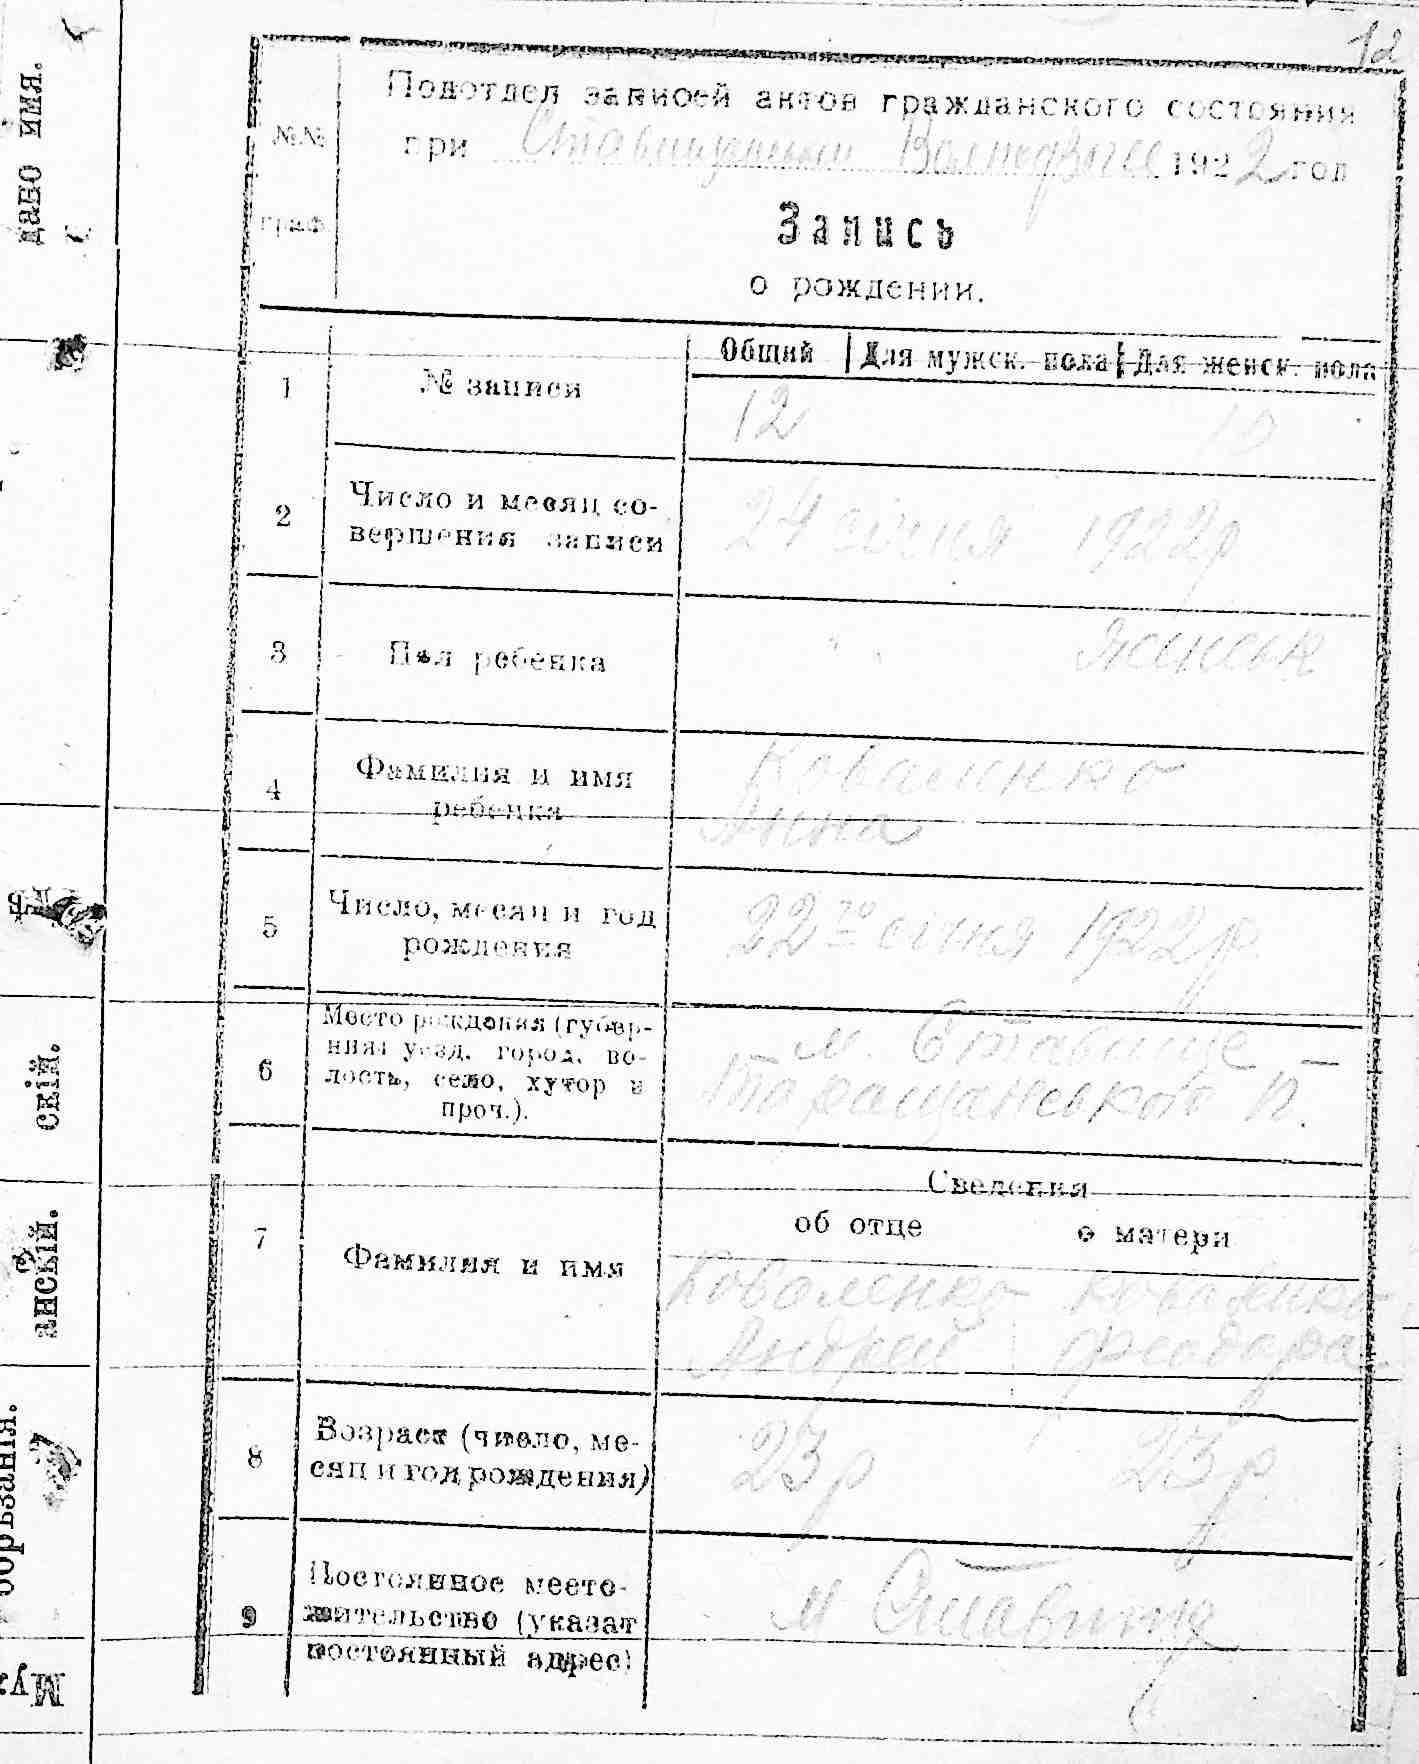 12
дано имя.
Подотдел записей актов гражданского состояния
№№ при Ставищенськім 1922 год
граф
Запись
о рождении.
Общий Для мужск. пола Для женск. пола
1 № записи
12 10
2 Число и месяц со-
вершения записи
24 січня 1922 р
3 Пол ребенка
женськ
4 Фамилия и имя
ребенка
Коваленко
Анна
5 Число, месяц и год
рождения
22го січня 1922 р.
6 Место рождения (губер-
ния, уезд, город, во-
лость, село, хутор и
проч.).
м. Ставище
Таращанського п.
скій.
Сведения
об отце о матери
7 Фамилия и имя
Коваленко Коваленко
Андрей Феодора
анскій.
8 Возраст (число, ме-
сяц и год рождения)
23 р 23 р
9 Постоянное место-
жительство (указат
постоянный адрес)
м Ставище
обрѣзанія.
Муж